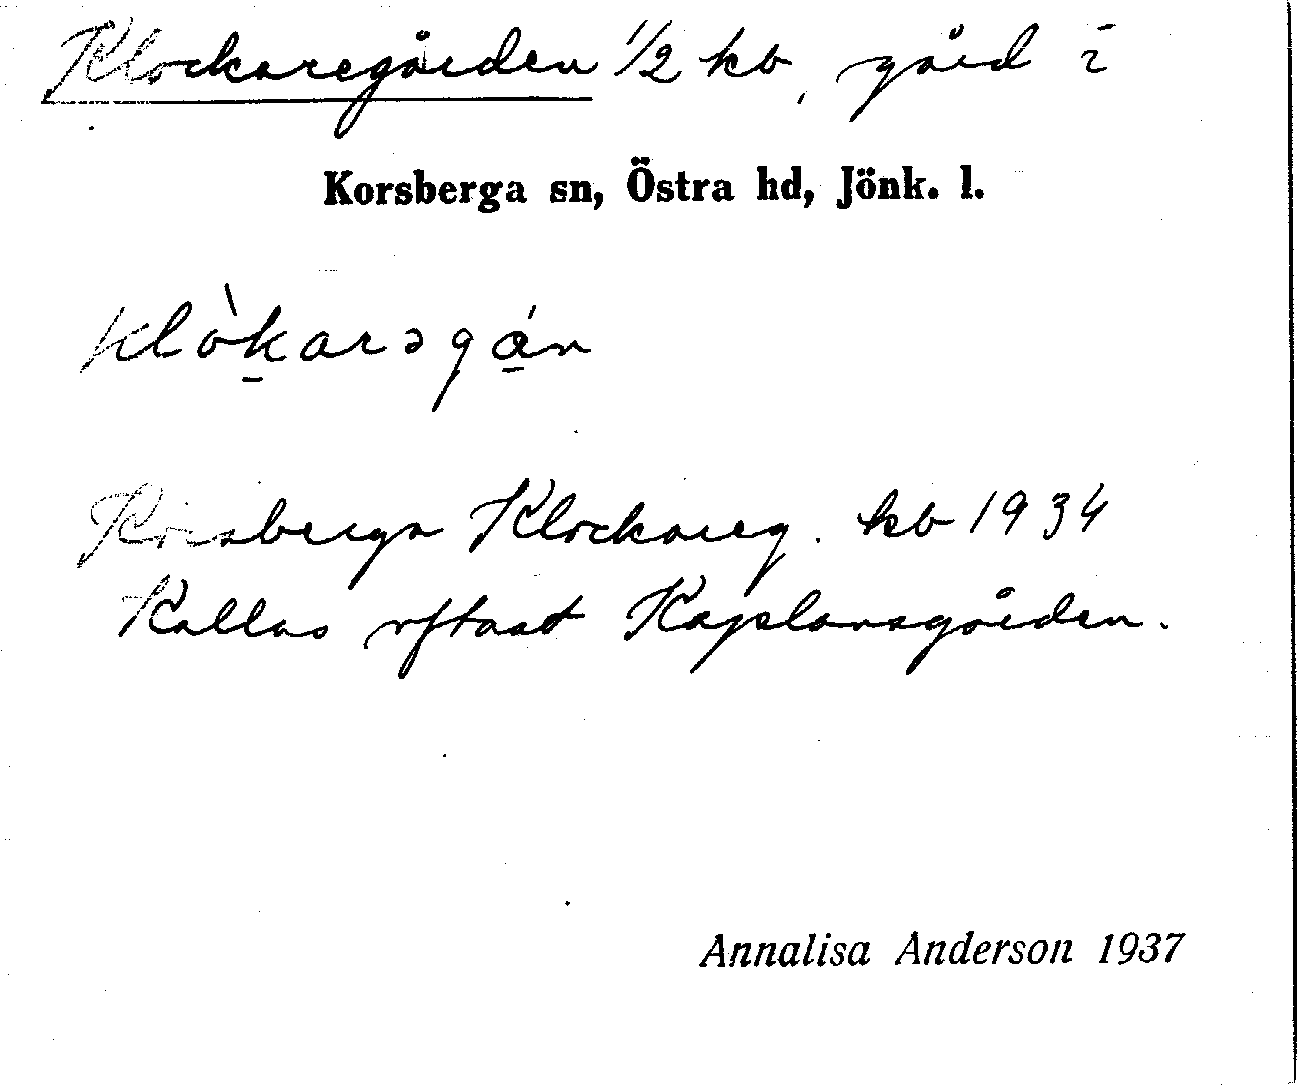 Klockaregården 1/2 kb, gård i
Korsberga sn, Östra hd, Jönk. l.
klòkarəgán
Korsberga Klockareg. kb 1934
Kallas oftast Kaplansgården.
Annalisa Anderson 1937